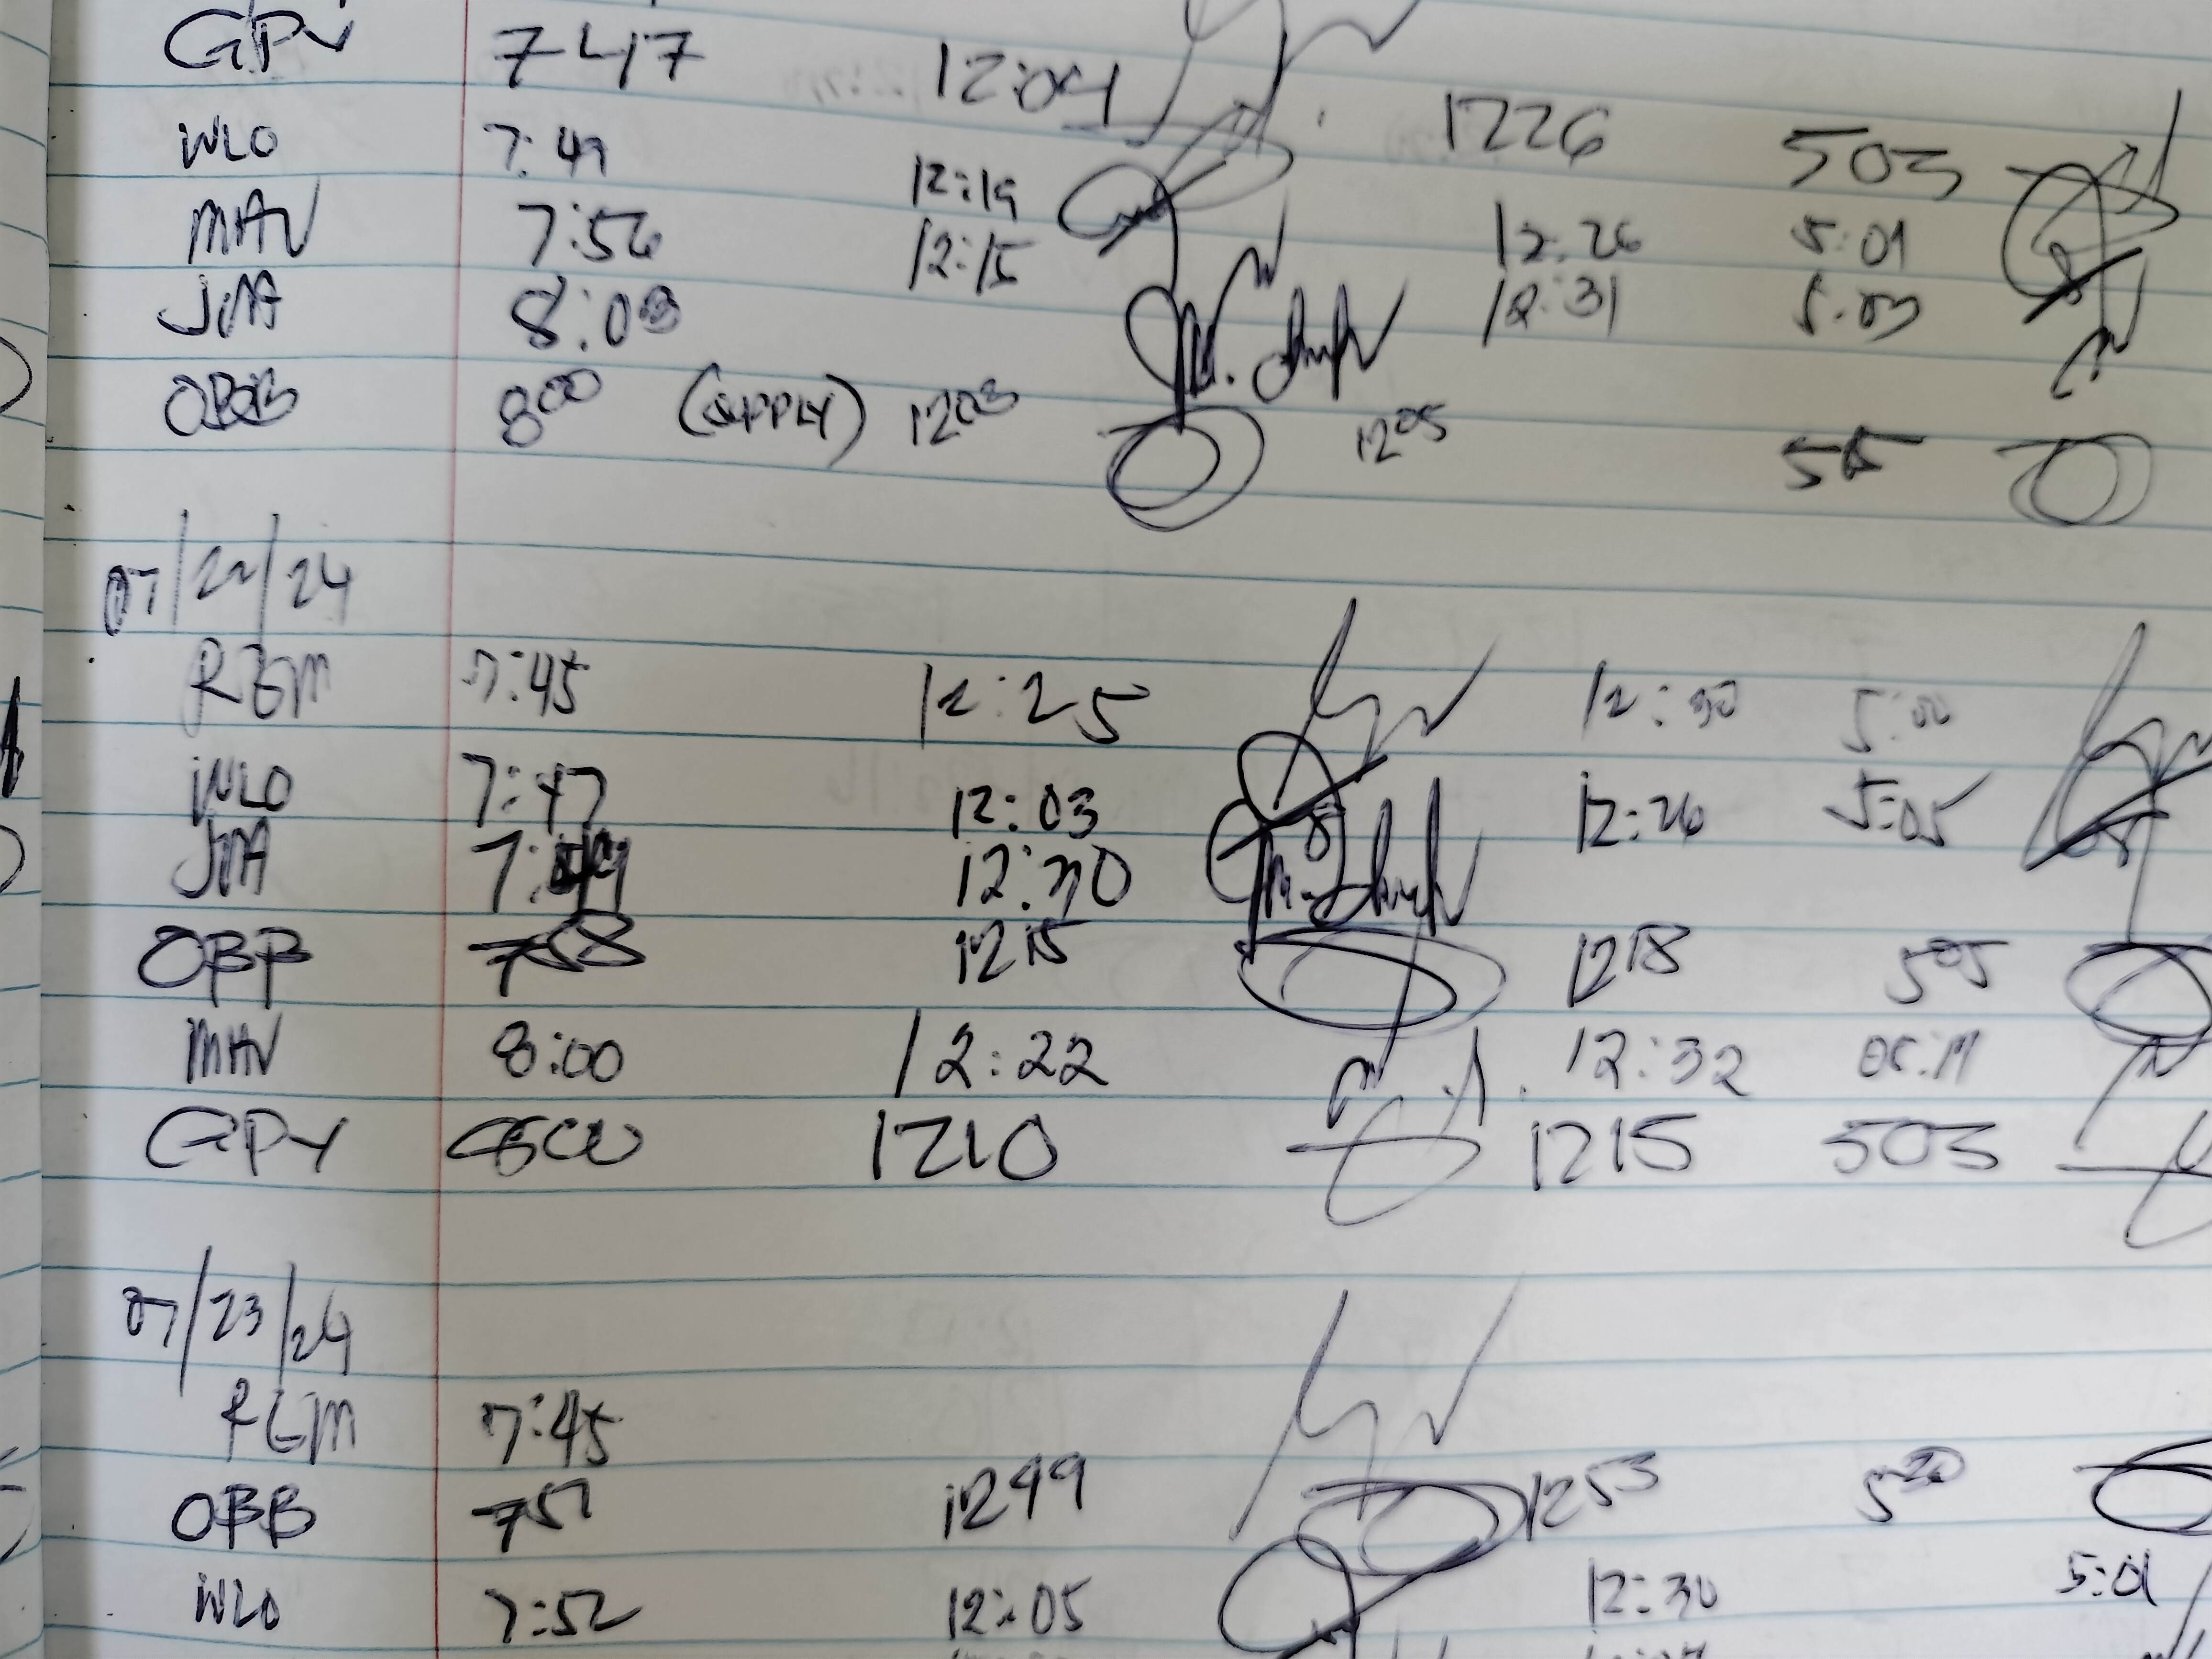 GPY 747 12:04 1226 503
WLO 7:49 12:19 12:26 5:01
MAV 7:56 12:15 12:31 5:03
JMA 8:03
OBB 800 (SUPPLY) 1203 1205 515
07/22/24
RGM 7:45 12:25 12:30 5:00
WLO 7:47 12:03 12:26 5:05
JMA 7:49 12:30
OBB 758 1215 1218 505
MAV 8:00 12:22 12:32
GPY 800 1210 1215 503
07/23/24
RGM 7:45
OBB 751 1249 1253 520
WLO 7:52 12:05 12:30 5:01